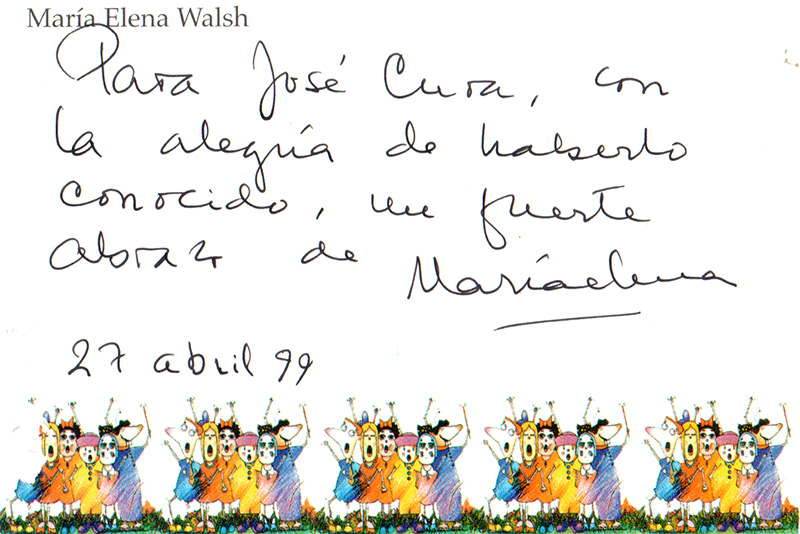 María Elena Walsh
Para José Cura, con
la alegría de haberlo
conocido, un fuerte
abrazo de Maríaelena
27 abril 99